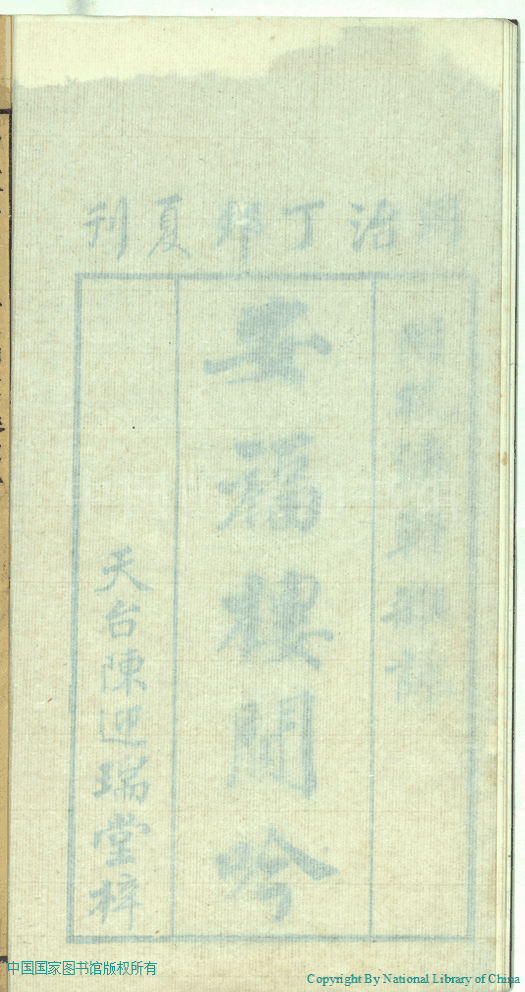 同治丁卯夏刊
安福樓閒吟
天台陳迎瑞堂梓
中国国家图书馆版权所有
Copyright By National Library of China